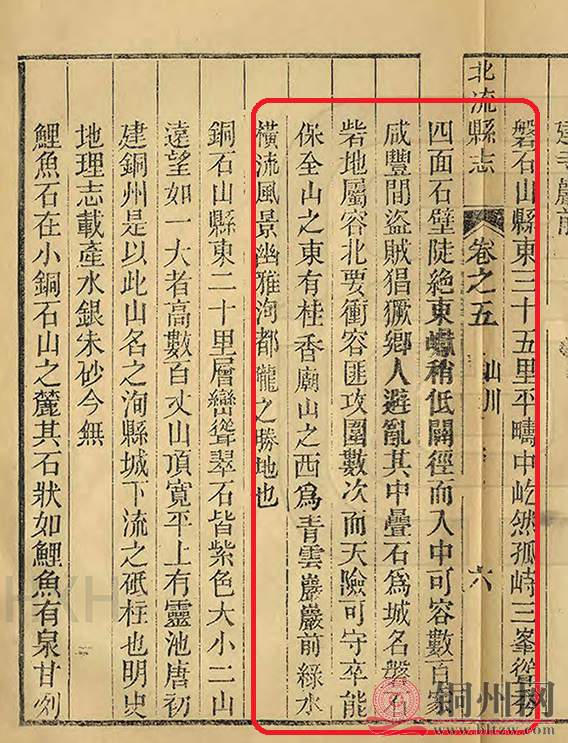 建寺巖前
磐石山縣東三十五里平疇中屹然孤峙三峯聳秀
北流縣志
卷之五
山川
六
四面石壁陡絕東巘稍低闢徑而入中可容數百家
咸豐間盜賊猖獗鄉人避亂其中疊石爲城名磐石
砦地屬容北要衝容匪攻圍數次而天險可守卒能
保全山之東有桂香廟山之西爲青雲巖巖前綠水
橫流風景幽雅洵都隴之勝地也
銅石山縣東二十里層巒聳翠石皆紫色大小二山
遠望如一大者高數百丈山頂寬平上有靈池唐初
建銅州是以此山名之洵縣城下流之砥柱也明史
地理志載產水銀朱砂今無
鯉魚石在小銅石山之麓其石狀如鯉魚有泉甘冽
铜州网
www.bltzw.com